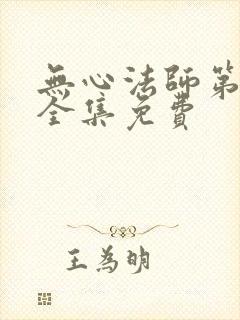 無心法師第
全集免費
王為明